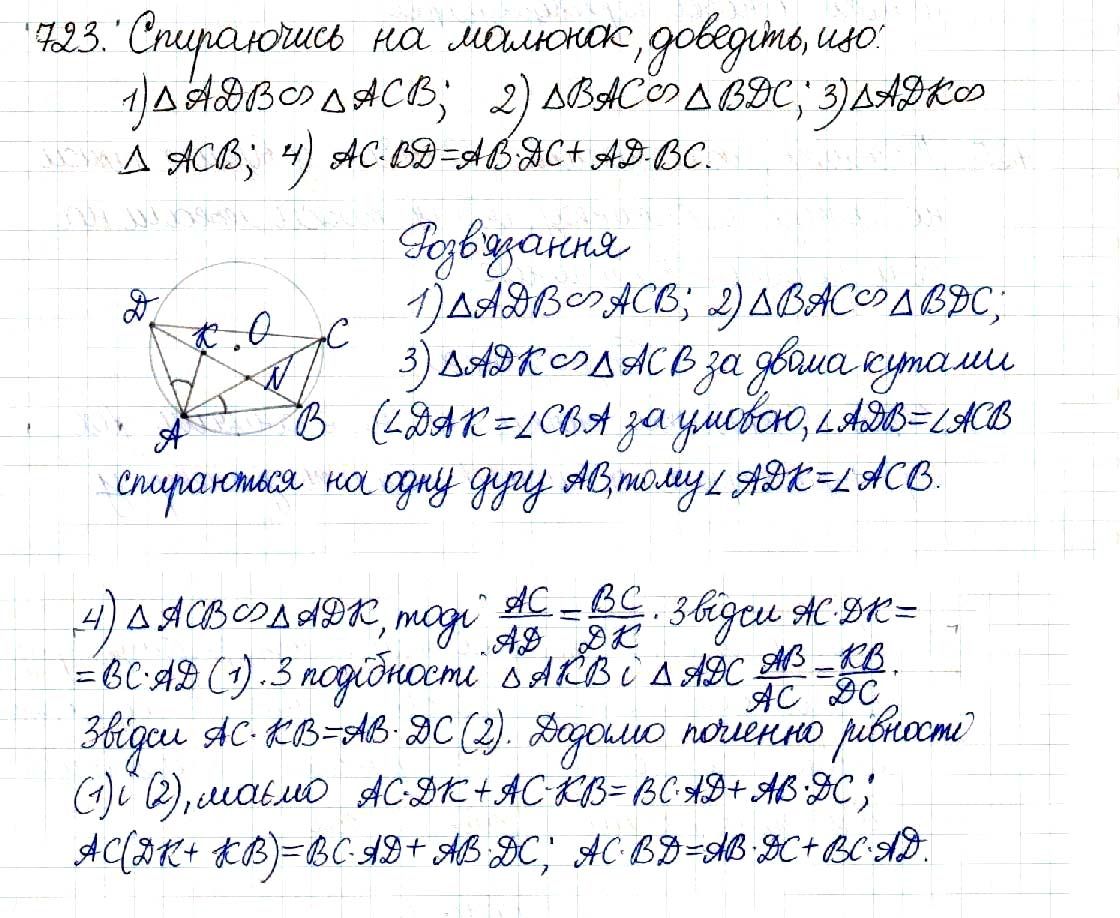 723. Спираючись на малюнок, доведіть, що:
1) △ ADB ∽ △ ACB; 2) △BAC ∽ △BDC; 3) △ADK ∽
△ ACB; 4) AC·BD=AB·DC+AD·BC.
Розв'язання
1) △ADB ∽ ACB; 2) △BAC ∽ △BDC;
3) △ADK ∽ △ACB за двома кутами
(∠DAK=∠CBA за умовою, ∠ADB=∠ACB
спираються на одну дугу AB, тому ∠ADK=∠ACB.
D K O C N A B
4) △ ACB ∽ △ADK, тоді AC/AD = BC/DK. Звідси AC·DK=
=BC·AD (1). З подібності △AKB і △ADC AB/AC = KB/DC.
Звідси AC·KB=AB·DC (2). Додамо почленно рівності
(1) і (2), маємо AC·DK+AC·KB=BC·AD+AB·DC;
AC(DK+KB)=BC·AD+AB·DC; AC·BD=AB·DC+BC·AD.